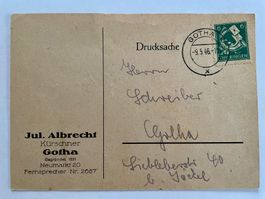 Drucksache
GOTHA
-9.5.46.-
THÜRINGEN
Herrn
Schreiber
Gotha
Siebleberstr. 40
b. Jockel
Jul. Albrecht
Kürschner
Gotha
Gegründet 1831
Neumarkt 20
Fernsprecher Nr. 2687